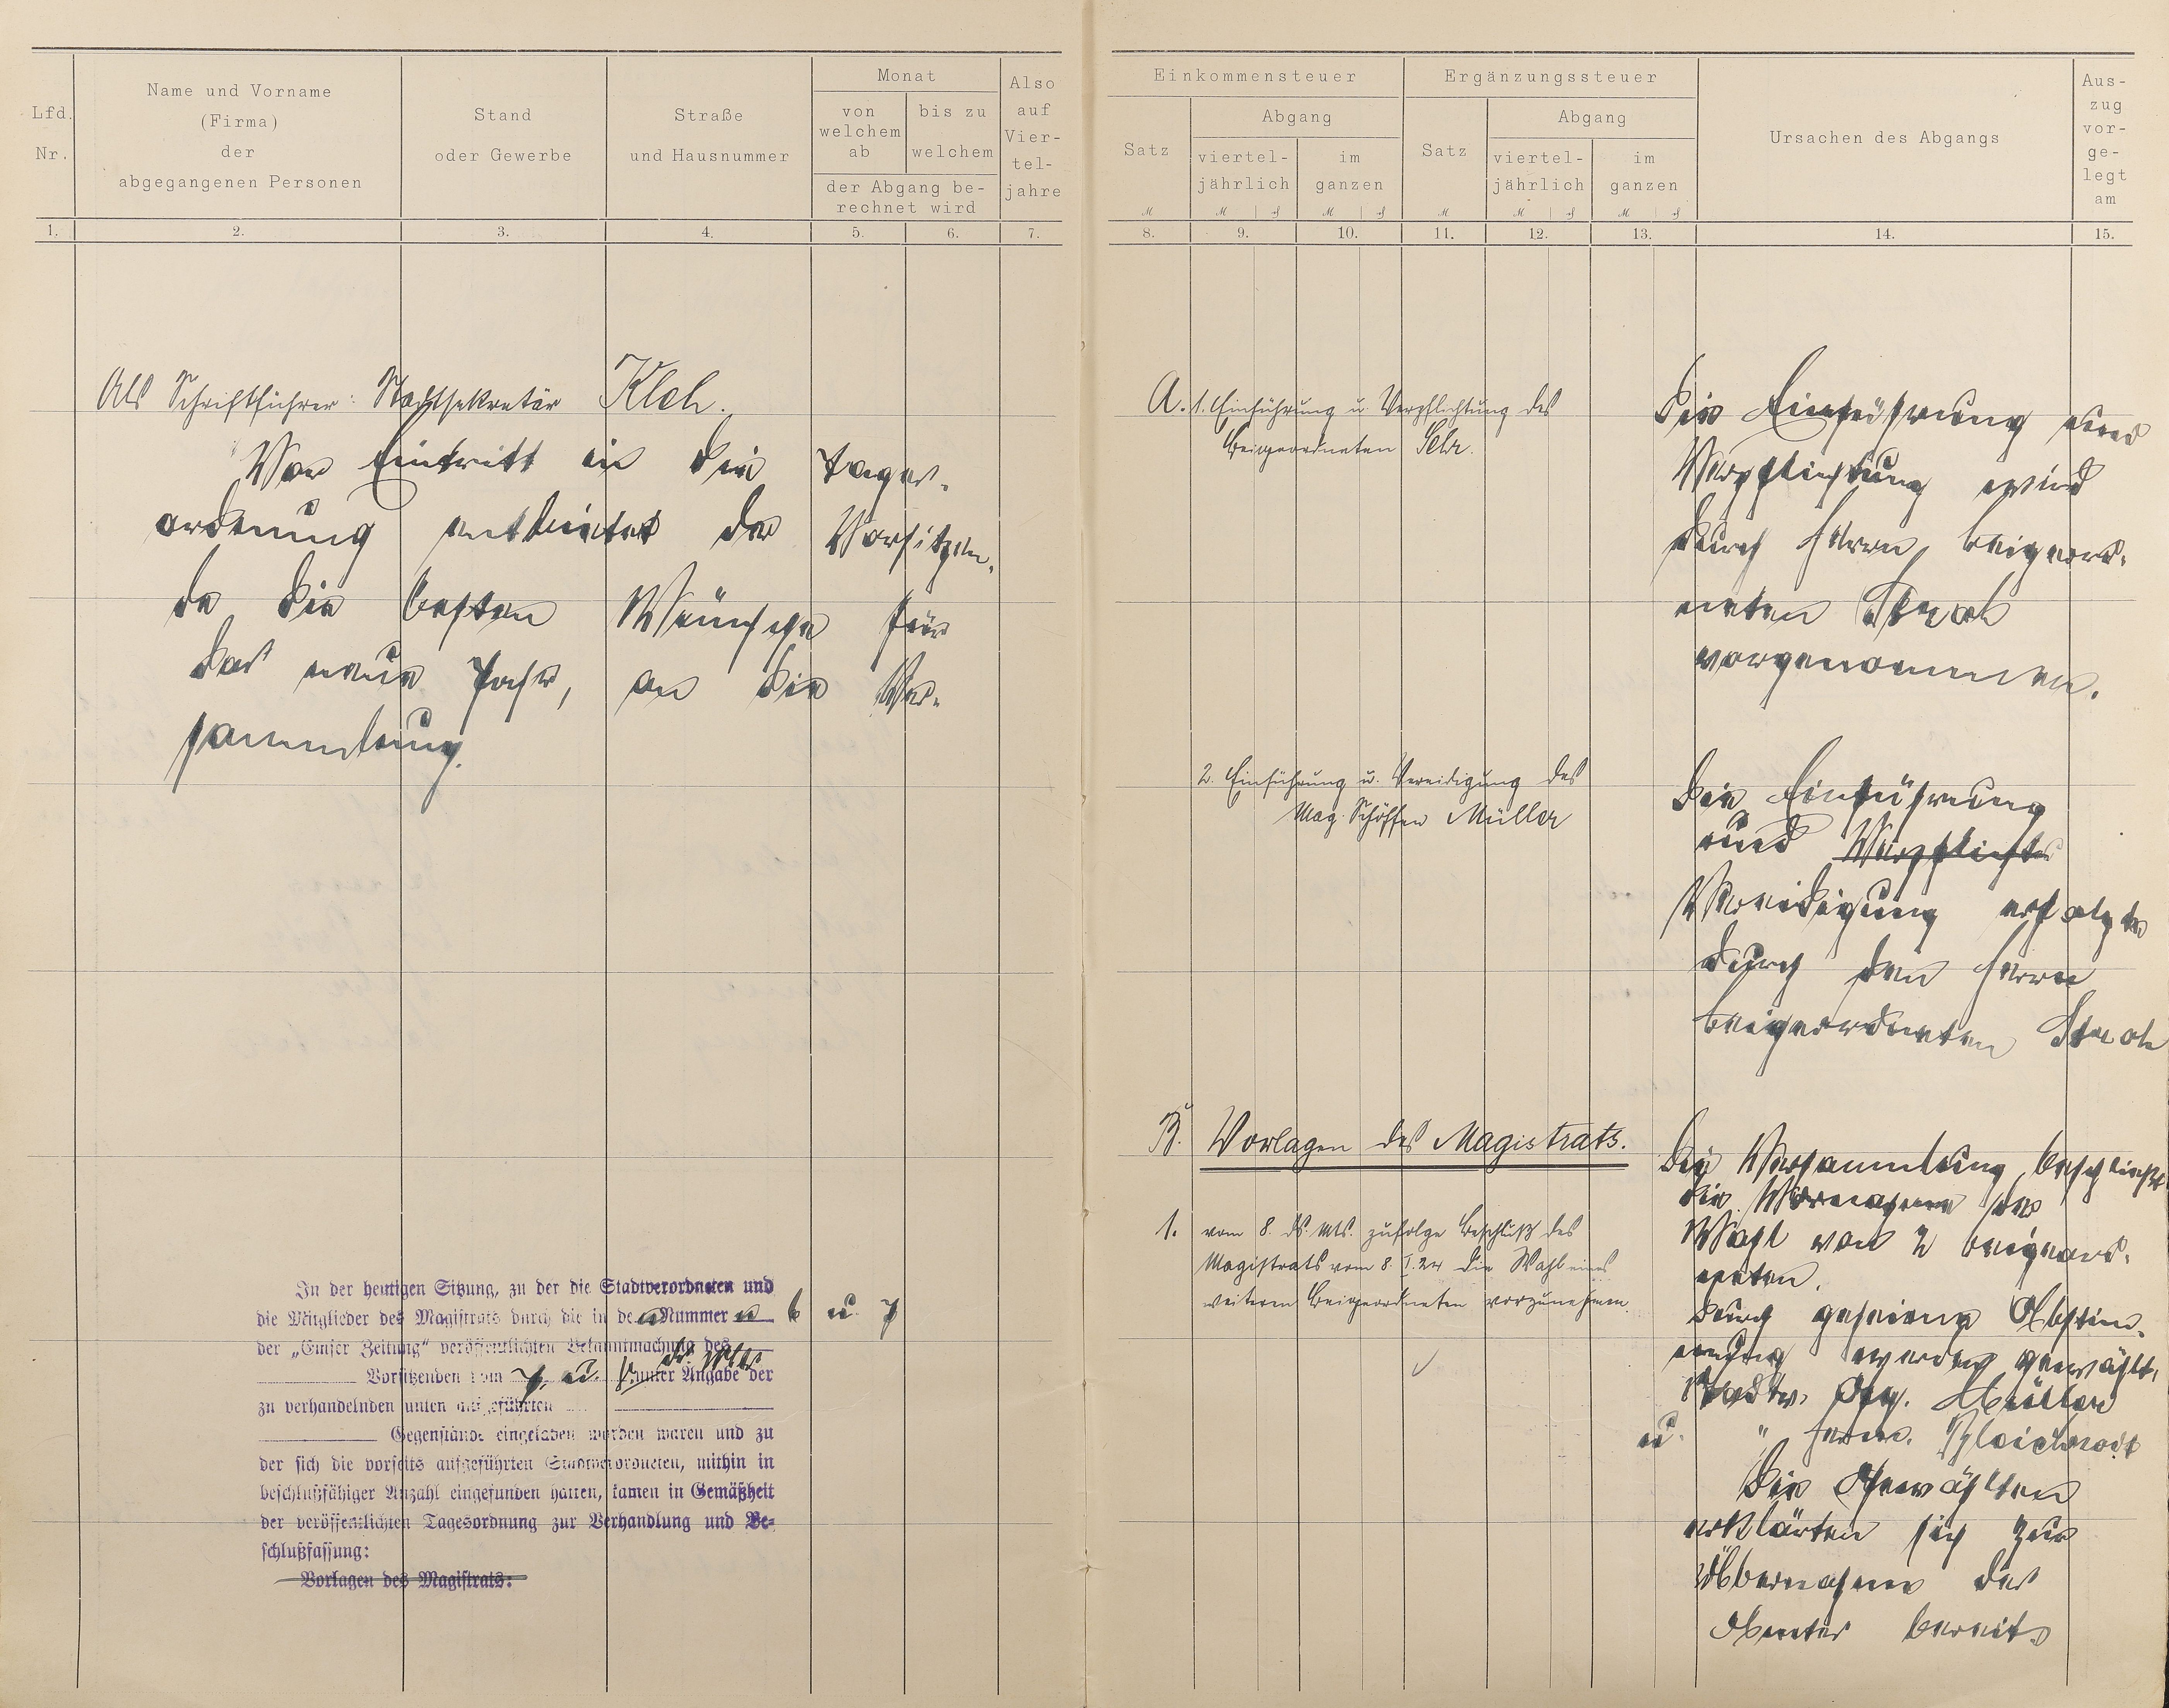 Lfd. Nr.
Name und Vorname
(Firma)
der
abgegangenen Personen
Stand
oder Gewerbe
Straße
und Hausnummer
Monat
von welchem ab
bis zu welchem
der Abgang be-
rechnet wird
Also auf Vier-tel-jahre
1. 2. 3. 4. 5. 6. 7.
Als Schriftführer: Stadtsekretär Kloh.
Vor Eintritt in die Tages-
ordnung entbietet der Vorsitzen-
de die besten Wünsche für
das neue Jahr, an die Ver-
sammlung.
In der heutigen Sitzung, zu der die Stadtverordneten und
die Mitglieder des Magistrats durch die in den Nummern 6 u. 7
der „Emser Zeitung“ veröffentlichten Bekanntmachung des
Vorsitzenden vom 7. u. ds. Mts. unter Angabe der
zu verhandelnden unten aufgeführten
Gegenstände eingeladen worden waren und zu
der sich die vorseits aufgeführten Stadtverordneten, mithin in
beschlußfähiger Anzahl eingefunden hatten, kamen in Gemäßheit
der veröffentlichten Tagesordnung zur Verhandlung und Be-
schlußfassung:
Vorlagen des Magistrats:
Einkommensteuer
Satz
Abgang
viertel-
jährlich
im
ganzen
Ergänzungssteuer
Satz
Abgang
viertel-
jährlich
im
ganzen
Ursachen des Abgangs
Aus-
zug
vor-
ge-
legt
am
8. 9. 10. 11. 12. 13. 14. 15.
A. 1. Einführung u. Verpflichtung des
Beigeordneten
Die Einführung und
Verpflichtung wird
durch Herrn Beigeord-
neten
vorgenommen.
2. Einführung u. Vereidigung des
Mag. Schöffen Müller
Die Einführung
und Verpflichte
Vereidigung erfolgte
durch den Herrn
Beigeordneten
B. Vorlagen des Magistrats.
1. vom 8. ds. Mts. zufolge Beschluß des
Magistrats vom 8. I. 24 die Wahl eines
weiteren Beigeordneten vorzunehmen.
Die Versammlung beschließt
die Vornahme der
Wahl von 2 Beigeord-
neten.
Durch geheime Abstim-
mung werden gewählt:
Stadtv. Müller
u. " Herm.
Die Gewählten
erklärten sich zur
Übernahme des
Amtes bereit.